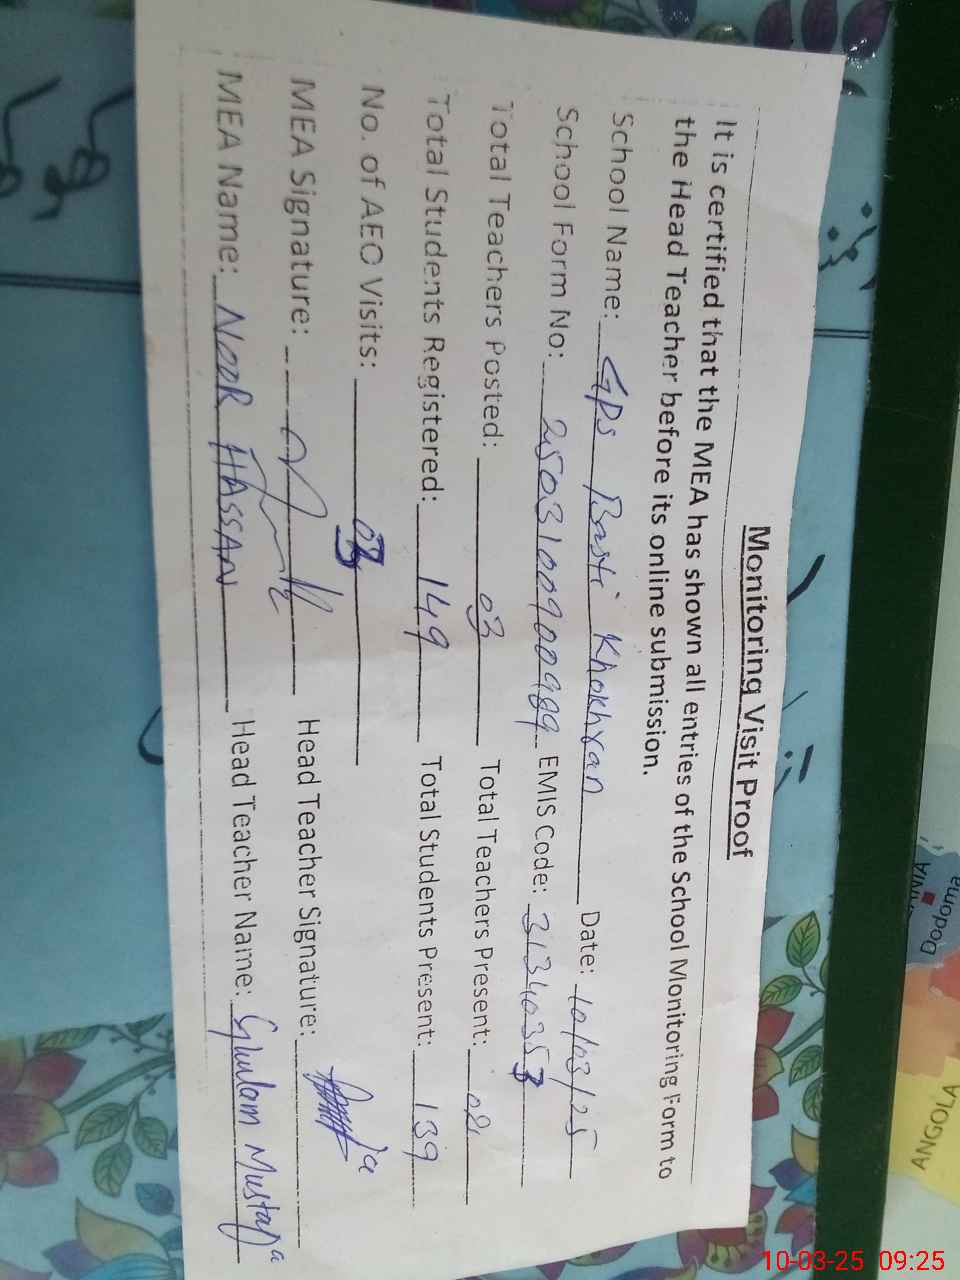 Monitoring Visit Proof
It is certified that the MEA has shown all entries of the School Monitoring Form to
the Head Teacher before its online submission.
School Name: GPS Basti Khokhran Date: 10/03/25
School Form No: 2503100900989 EMIS Code: 31340353
Total Teachers Posted: 03 Total Teachers Present: 02
Total Students Registered: 149 Total Students Present: 139
No. of AEO Visits: 03
MEA Signature: Head Teacher Signature:
MEA Name: NOOR HASSAN Head Teacher Name: Ghulam Mustafa
Dodoma
ANGOLA
10-03-25 09:25